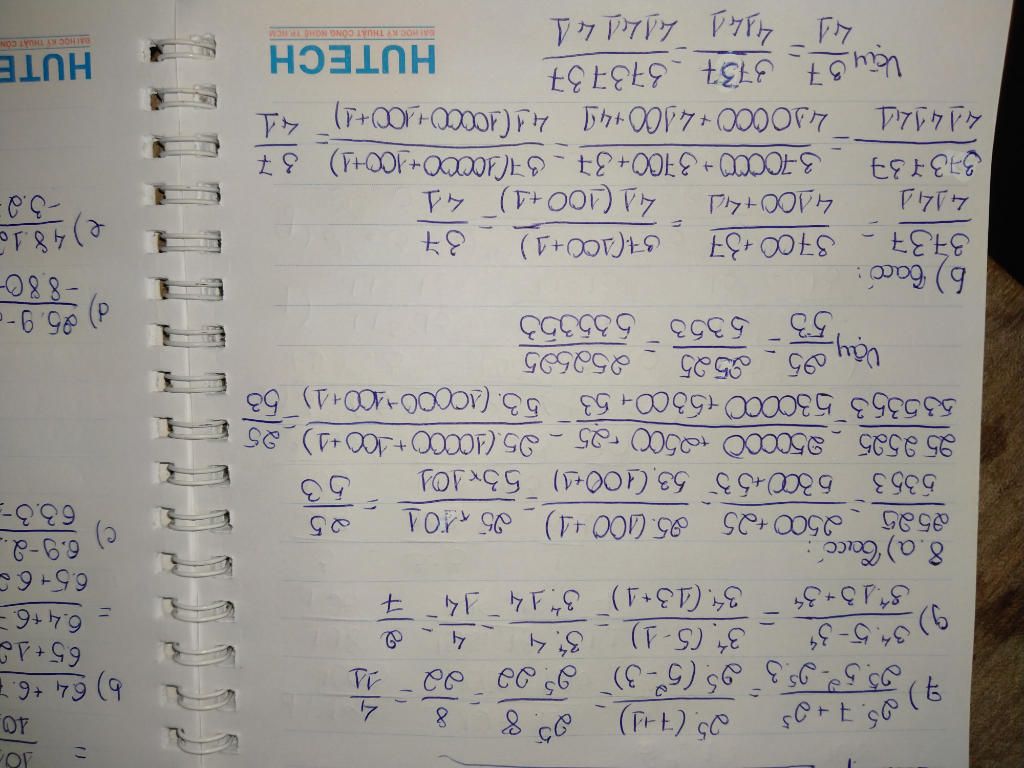 7) 2⁵.7+2⁵ / 2⁵.5²-2⁵.3 = 2⁵.(7+1) / 2⁵(5²-3) = 2⁵.8 / 2⁵.22 = 8 / 22 = 4 / 11
g) 3⁴.5-3⁴ / 3⁴.13+3⁴ = 3⁴.(5-1) / 3⁴.(13+1) = 3⁴.4 / 3⁴.14 = 4 / 14 = 2 / 7
8.a) Ta có:
2525 / 5353 = 2500+25 / 5300+53 = 25.(100+1) / 53.(100+1) = 25×101 / 53×101 = 25 / 53
252525 / 535353 = 250000+2500+25 / 530000+5300+53 = 25.(10000+100+1) / 53.(10000+100+1) = 25 / 53
Vậy 25 / 53 = 2525 / 5353 = 252525 / 535353
b) Ta có:
3737 / 4141 = 3700+37 / 4100+41 = 37(100+1) / 41(100+1) = 37 / 41
373737 / 414141 = 370000+3700+37 / 410000+4100+41 = 37(10000+100+1) / 41(10000+100+1) = 37 / 41
Vậy 37 / 41 = 3737 / 4141 = 373737 / 414141
HUTECH
ĐẠI HỌC KỸ THUẬT CÔNG NGHỆ TP.HCM
= 10
b) 64+6.7 / 65+12
= 6.4+6.7 / 6.5+6.2
c) 6.9-2. / 63.3-
d) 25.9-2 / -8.80-
e) 48.12 / -3.2
HUTE
ĐẠI HỌC KỸ THUẬT CÔN